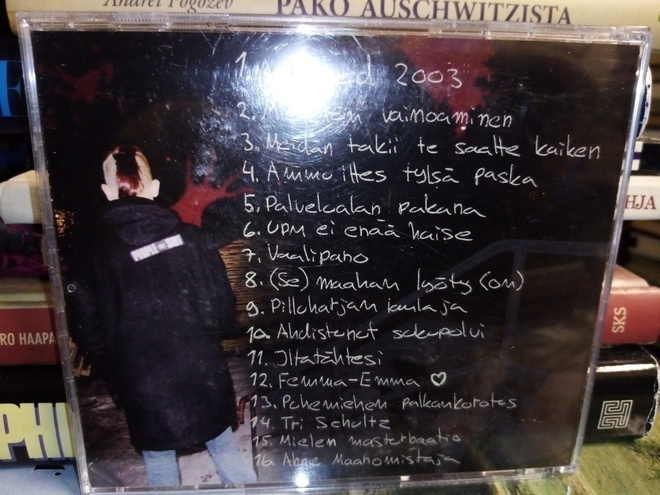 Andrei Pogožev
PAKO AUSCHWITZISTA
1. 2003
2. vainoaminen
3. Meidän takii te saatte kaiken
4. Ammu ittes tylsä paska
5. Palvelualan pakana
6. UPM ei enää haise
7. Vaalipano
8. (Se) maahan lyöty (on)
9. Pilloharjan laulaja
10. Ahdistunut sukupolvi
11. Iltatähtesi
12. Femma-Emma ♡
13. Puhemiehen palkankorotus
14. Tri Schultz
15. Mielen masturbaatio
16. Ahne Maanomistaja
RO HAAPA
PHI
HJA
SKS